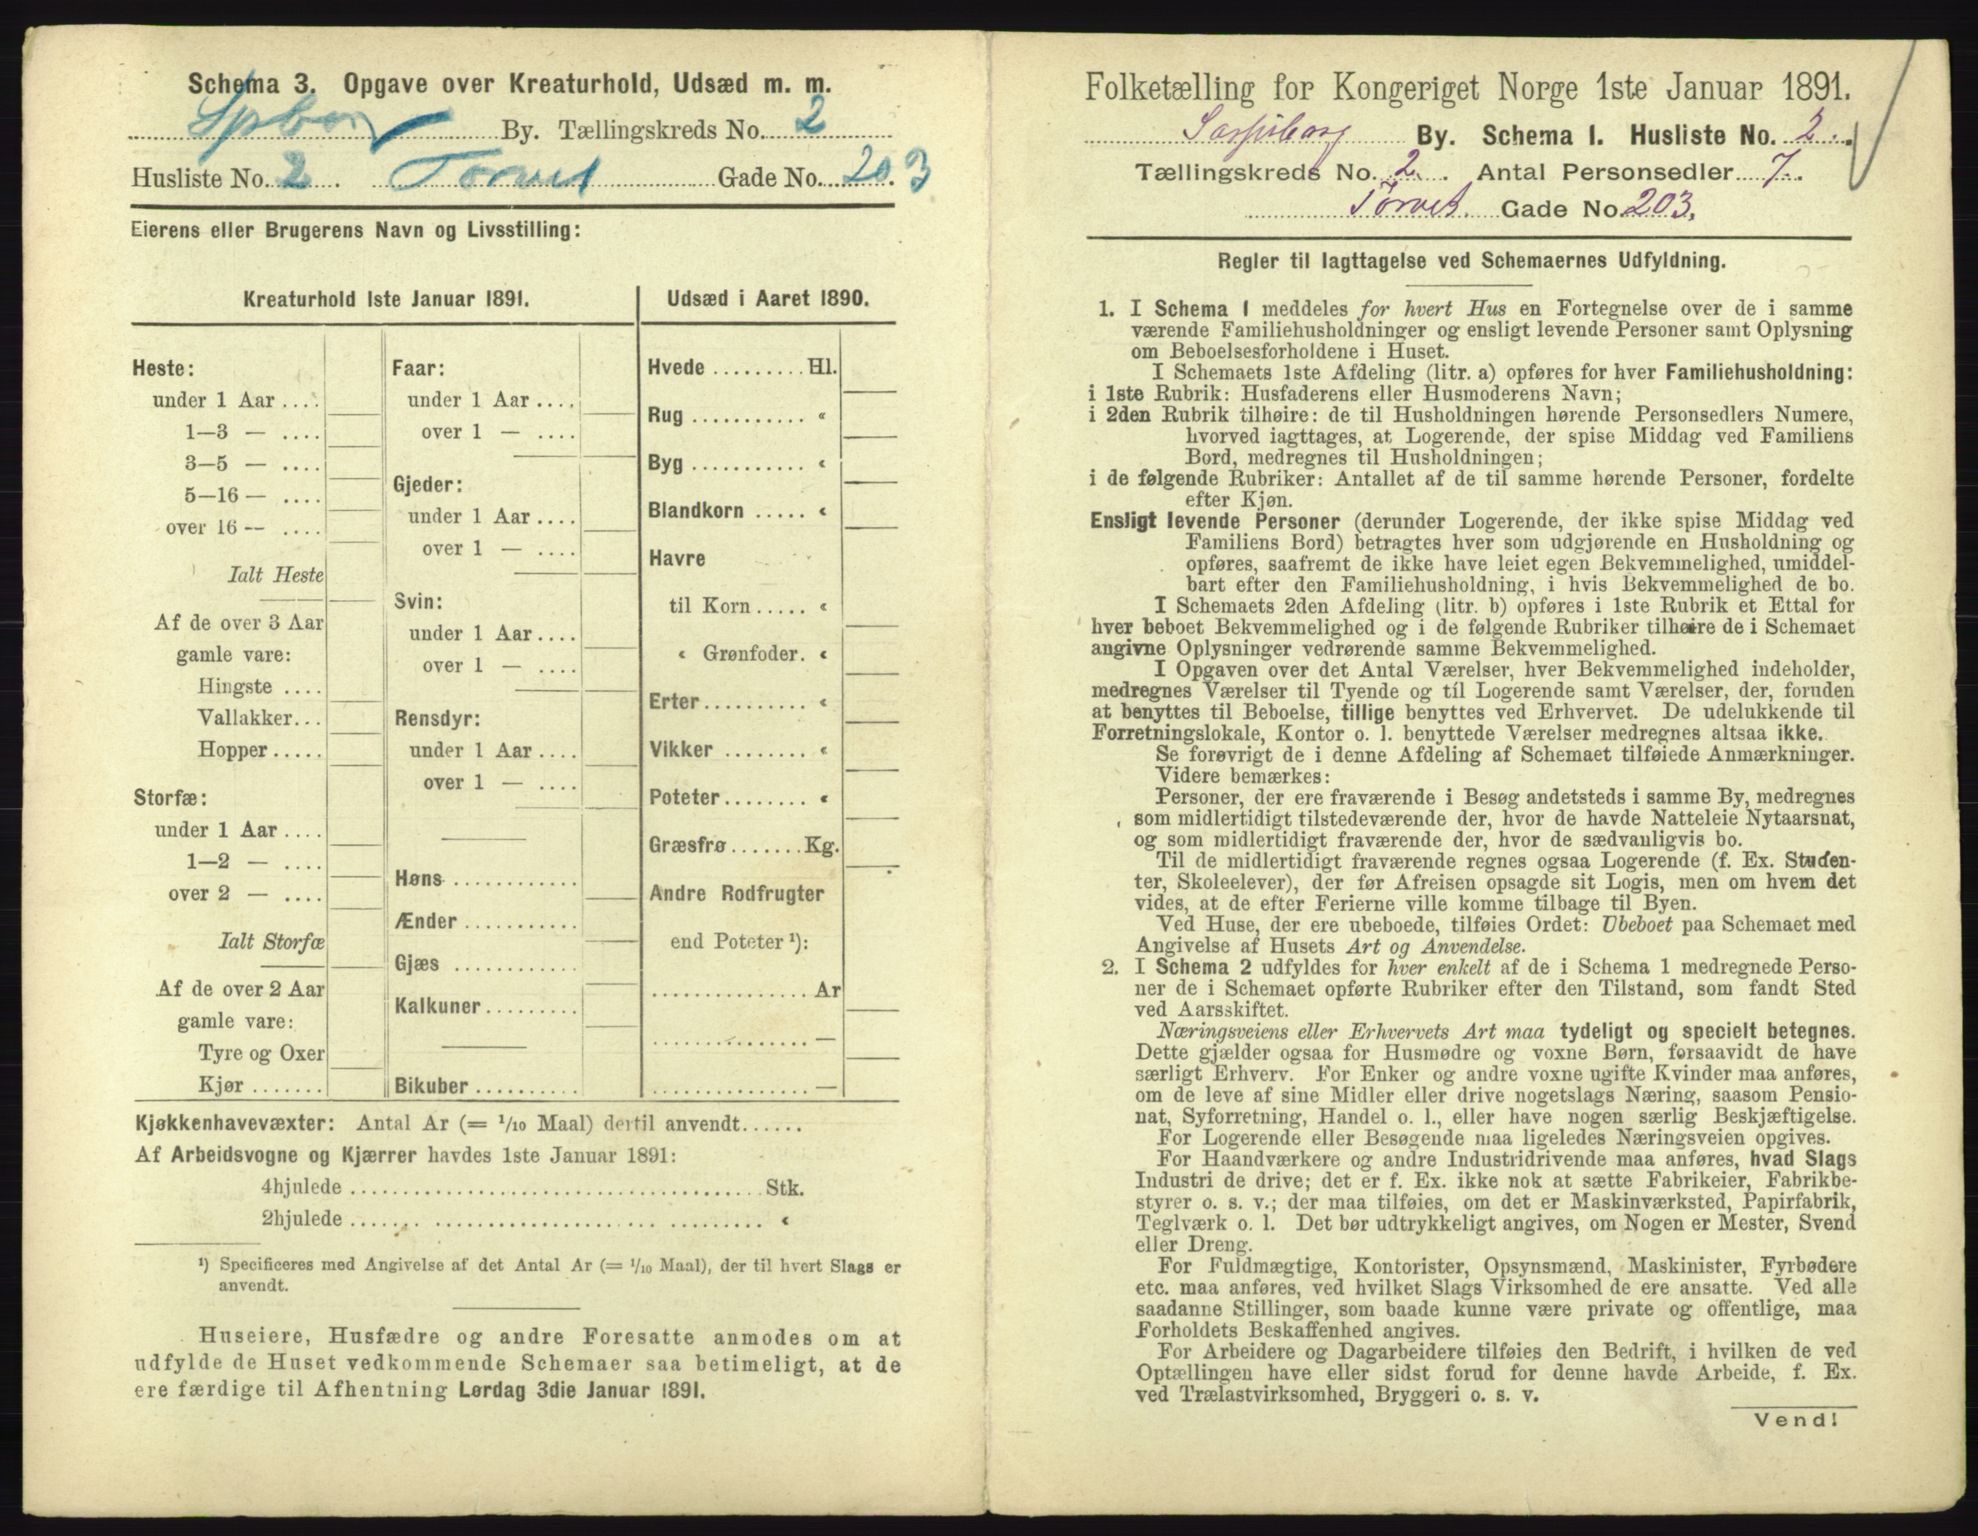 Schema 3. Opgave over Kreaturhold, Udsæd m. m.
Spborg By. Tællingskreds No. 2
Husliste No. 2. Torvet Gade No. 203
Eierens eller Brugerens Navn og Livsstilling:
Kreaturhold 1ste Januar 1891.
Heste:
under 1 Aar ....
1—3 — ....
3—5 — ....
5—16 — ....
over 16 — ....
Ialt Heste
Af de over 3 Aar
gamle vare:
Hingste ....
Vallakker...
Hopper.....
Storfæ:
under 1 Aar ....
1—2 — ....
over 2 — ....
Ialt Storfæ
Af de over 2 Aar
gamle vare:
Tyre og Oxer
Kjør .......
Faar:
under 1 Aar ....
over 1 — ....
Gjeder:
under 1 Aar ....
over 1 — ....
Svin:
under 1 Aar ....
over 1 — ....
Rensdyr:
under 1 Aar ....
over 1 — ....
Høns ............
Ænder ...........
Gjæs ............
Kalkuner .........
Bikuber ..........
Udsæd i Aaret 1890.
Hvede ......... Hl.
Rug ........... «
Byg ........... «
Blandkorn ..... «
Havre
til Korn ..... «
« Grønfoder. «
Erter .......... «
Vikker ......... «
Poteter ........ «
Græsfrø ....... Kg.
Andre Rodfrugter
end Poteter ¹):
............... Ar
............... —
............... —
Kjøkkenhavevæxter: Antal Ar (= 1/10 Maal) dertil anvendt......
Af Arbeidsvogne og Kjærrer havdes 1ste Januar 1891:
4hjulede ........................................ Stk.
2hjulede ........................................ «
¹) Specificeres med Angivelse af det Antal Ar (= 1/10 Maal), der til hvert Slags er
anvendt.
Huseiere, Husfædre og andre Foresatte anmodes om at
udfylde de Huset vedkommende Schemaer saa betimeligt, at de
ere færdige til Afhentning Lørdag 3die Januar 1891.
Folketælling for Kongeriget Norge 1ste Januar 1891.
Sarpsborg By. Schema 1. Husliste No. 2.
Tællingskreds No. 2. Antal Personsedler 7.
Torvet. Gade No. 203.
Regler til Iagttagelse ved Schemaernes Udfyldning.
1. I Schema 1 meddeles for hvert Hus en Fortegnelse over de i samme
værende Familiehusholdninger og ensligt levende Personer samt Oplysning
om Beboelsesforholdene i Huset.
I Schemaets 1ste Afdeling (litr. a) opføres for hver Familiehusholdning:
i 1ste Rubrik: Husfaderens eller Husmoderens Navn;
i 2den Rubrik tilhøire: de til Husholdningen hørende Personsedlers Numere,
hvorved iagttages, at Logerende, der spise Middag ved Familiens
Bord, medregnes til Husholdningen;
i de følgende Rubriker: Antallet af de til samme hørende Personer, fordelte
efter Kjøn.
Ensligt levende Personer (derunder Logerende, der ikke spise Middag ved
Familiens Bord) betragtes hver som udgjørende en Husholdning og
opføres, saafremt de ikke have leiet egen Bekvemmelighed, umiddel-
bart efter den Familiehusholdning, i hvis Bekvemmelighed de bo.
I Schemaets 2den Afdeling (litr. b) opføres i 1ste Rubrik et Ettal for
hver beboet Bekvemmelighed og i de følgende Rubriker tilhøire de i Schemaet
angivne Oplysninger vedrørende samme Bekvemmelighed.
I Opgaven over det Antal Værelser, hver Bekvemmelighed indeholder,
medregnes Værelser til Tyende og til Logerende samt Værelser, der, foruden
at benyttes til Beboelse, tillige benyttes ved Erhvervet. De udelukkende til
Forretningslokale, Kontor o. l. benyttede Værelser medregnes altsaa ikke.
Se forøvrigt de i denne Afdeling af Schemaet tilføiede Anmærkninger.
Videre bemærkes:
Personer, der ere fraværende i Besøg andetsteds i samme By, medregnes
som midlertidigt tilstedeværende der, hvor de havde Natteleie Nytaarsnat,
og som midlertidigt fraværende der, hvor de sædvanligvis bo.
Til de midlertidigt fraværende regnes ogsaa Logerende (f. Ex. Studen-
ter, Skoleelever), der før Afreisen opsagde sit Logis, men om hvem det
vides, at de efter Ferierne ville komme tilbage til Byen.
Ved Huse, der ere ubeboede, tilføies Ordet: Ubeboet paa Schemaet med
Angivelse af Husets Art og Anvendelse.
2. I Schema 2 udfyldes for hver enkelt af de i Schema 1 medregnede Perso-
ner de i Schemaet opførte Rubriker efter den Tilstand, som fandt Sted
ved Aarsskiftet.
Næringsveiens eller Erhvervets Art maa tydeligt og specielt betegnes.
Dette gjælder ogsaa for Husmødre og voxne Børn, forsaavidt de have
særligt Erhverv. For Enker og andre voxne ugifte Kvinder maa anføres,
om de leve af sine Midler eller drive nogetslags Næring, saasom Pensio-
nat, Syforretning, Handel o. l., eller have nogen særlig Beskjæftigelse.
For Logerende eller Besøgende maa ligeledes Næringsveien opgives.
For Haandværkere og andre Industridrivende maa anføres, hvad Slags
Industri de drive; det er f. Ex. ikke nok at sætte Fabrikeier, Fabrikbe-
styrer o. s. v.; der maa tilføies, om det er Maskinværksted, Papirfabrik,
Teglværk o. l. Det bør udtrykkeligt angives, om Nogen er Mester, Svend
eller Dreng.
For Fuldmægtige, Kontorister, Opsynsmænd, Maskinister, Fyrbødere
etc. maa anføres, ved hvilket Slags Virksomhed de ere ansatte. Ved alle
saadanne Stillinger, som baade kunne være private og offentlige, maa
Forholdets Beskaffenhed angives.
For Arbeidere og Dagarbeidere tilføies den Bedrift, i hvilken de ved
Optællingen have eller sidst forud for denne havde Arbeide, f. Ex.
ved Trælastvirksomhed, Bryggeri o. s. v.
Vend!